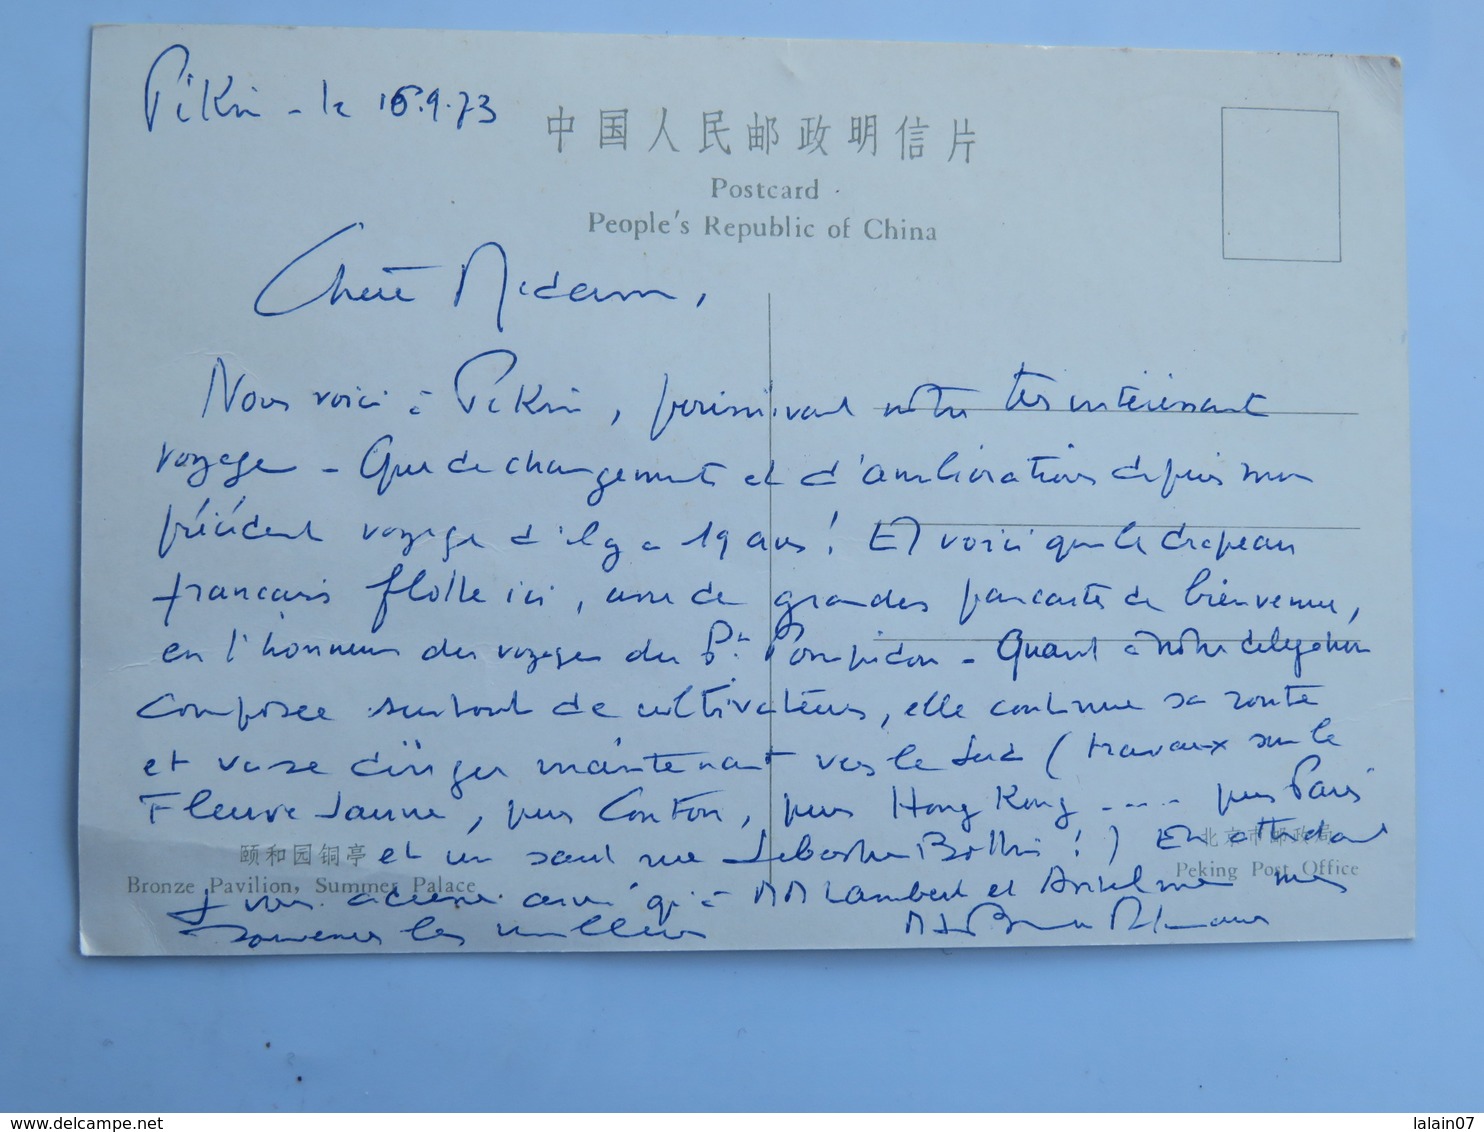 Pékin - le 16.9.73
中国人民邮政明信片
Postcard
People's Republic of China
Chère Madame,
Nous voici à Pékin, poursuivant notre très intéressant
voyage - Que de changements et d'améliorations depuis mon
précédent voyage d'il y a 19 ans ! Et voici que le drapeau
français flotte ici, avec de grandes pancartes de bienvenue,
en l'honneur du voyage du Pt Pompidou - Quant à notre délégation
composée surtout de cultivateurs, elle continue sa route
et va se diriger maintenant vers le Sud (travaux sur le
Fleuve Jaune, puis Canton, puis Hong Kong .... puis Paris
et un saut rue Sébastien Bottin !) En attendant
颐和园铜亭
北京市邮政局
Bronze Pavilion, Summer Palace
Peking Post Office
je vous adresse ainsi qu'à MM Lambert et Anselme mes
souvenirs les meilleurs
delcampe.net
lalain07